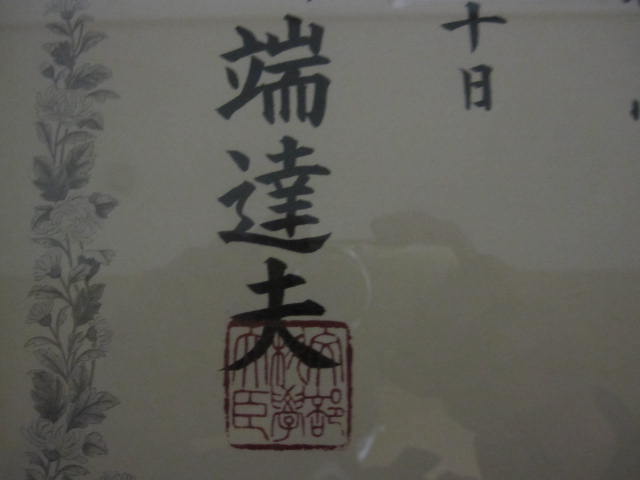 十日
端達夫
文部
科学
大臣